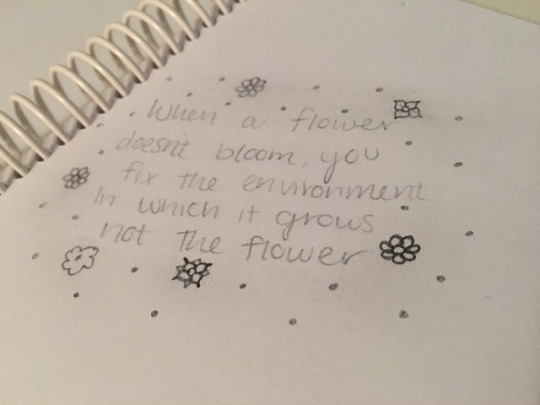 When a flower
doesn't bloom, you
fix the environment
in which it grows
not the flower